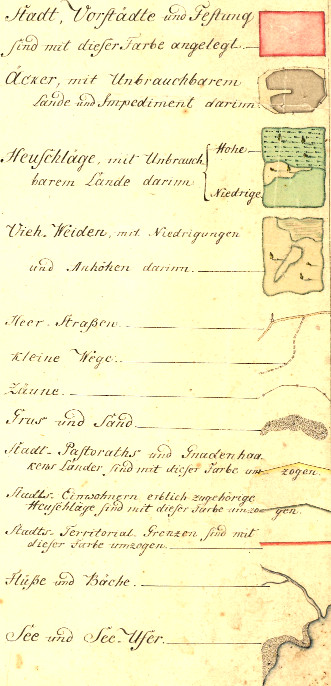 Stadt, Vorstädte und Festung
sind mit dieser Farbe angelegt
Äcker, mit Unbrauchbarem
Lande und Impediment darinn
Heuschläge, mit Unbrauch
barem Lande darinn
Hohe
Niedrige
Vieh-Weiden, mit Niedrigungen
und Anhöhen darinn.
Heer-Straßen
Kleine Wege.
Zäune.
Grus und Sand
Stadt-Pastoraths und Gnadenhaa
kens Länder sind mit dieser Farbe um zogen.
Stadts-Einwohnern erblich zugehörige
Heuschläge sind mit dieser Farbe umzo gen.
Stadts-Territorial-Grenzen sind mit
dieser Farbe umzogen
Flüße und Bäche.
See und See-Ufer.